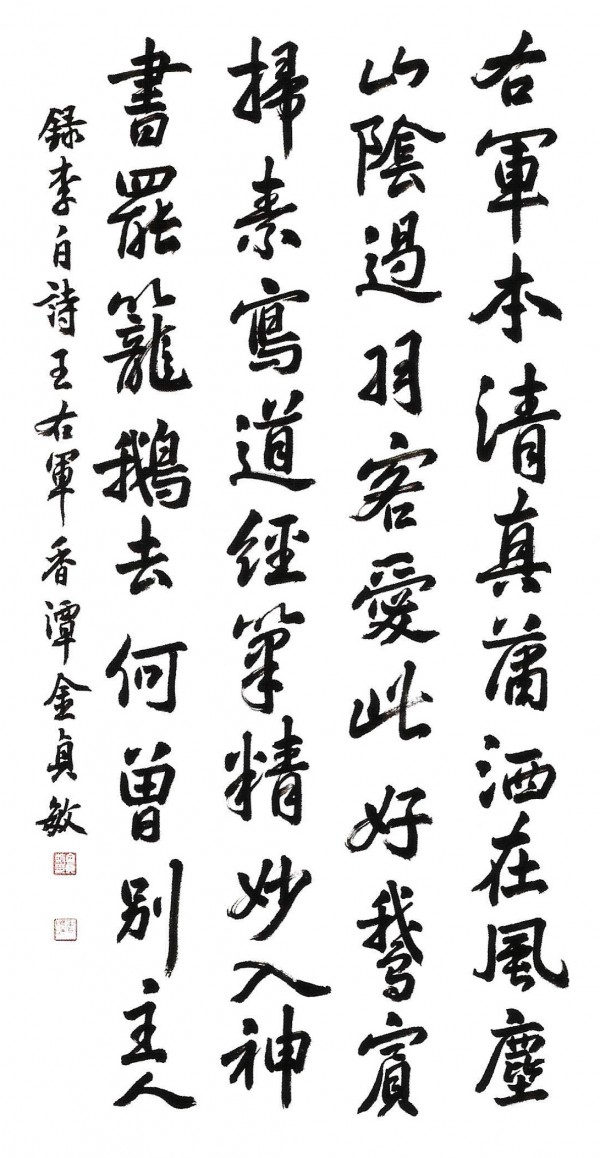 右軍本清真蕭洒在風塵
山陰過羽客愛此好鵞賓
掃素寫道經筆精妙入神
書罷籠鵝去何曾別主人
錄李白詩王右軍香潭金貞敏